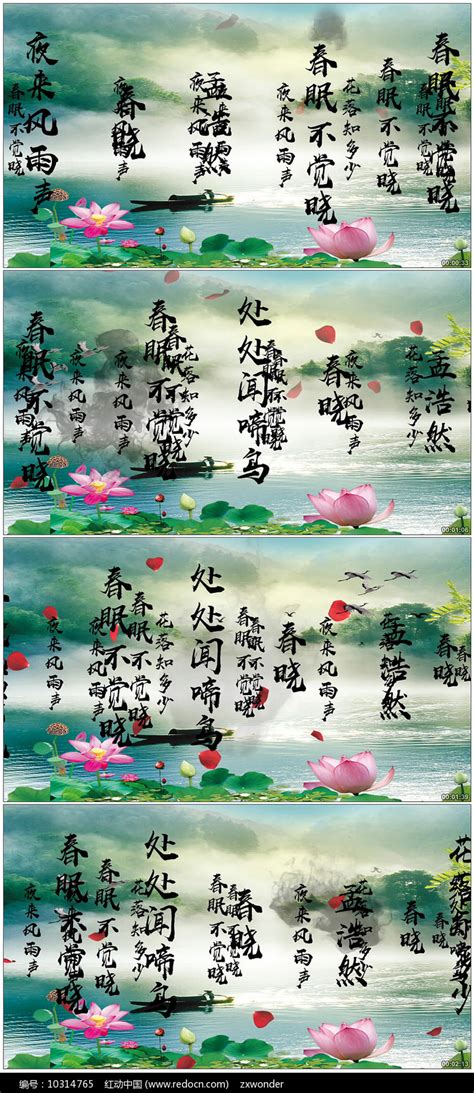 春眠不觉晓
春眠不觉晓
花落知多少
春眠不觉晓
夜来风雨声
孟浩然
夜来风雨声
春晓
夜来风雨声
春眠不觉晓
00:00:33
孟浩然
花落知多少
夜来风雨声
春晓
春眠不觉晓
处处闻啼鸟
花落知多少
春眠不觉晓
春眠不觉晓
夜来风雨声
春眠不觉晓
夜来风雨声
00:01:06
孟浩然
夜来风雨声
春晓
春眠不觉晓
春眠不觉晓
处处闻啼鸟
花落知多少
春眠不觉晓
春眠不觉晓
夜来风雨声
夜来风雨声
00:01:39
春晓
花落知多少
孟浩然
夜来风雨声
春眠不觉晓
春眠不觉晓
处处闻啼鸟
花落知多少
春眠不觉晓
春眠不觉晓
夜来风雨声
00:02:13
编号：10314765 红动中国 (www.redocn.com) zxwonder